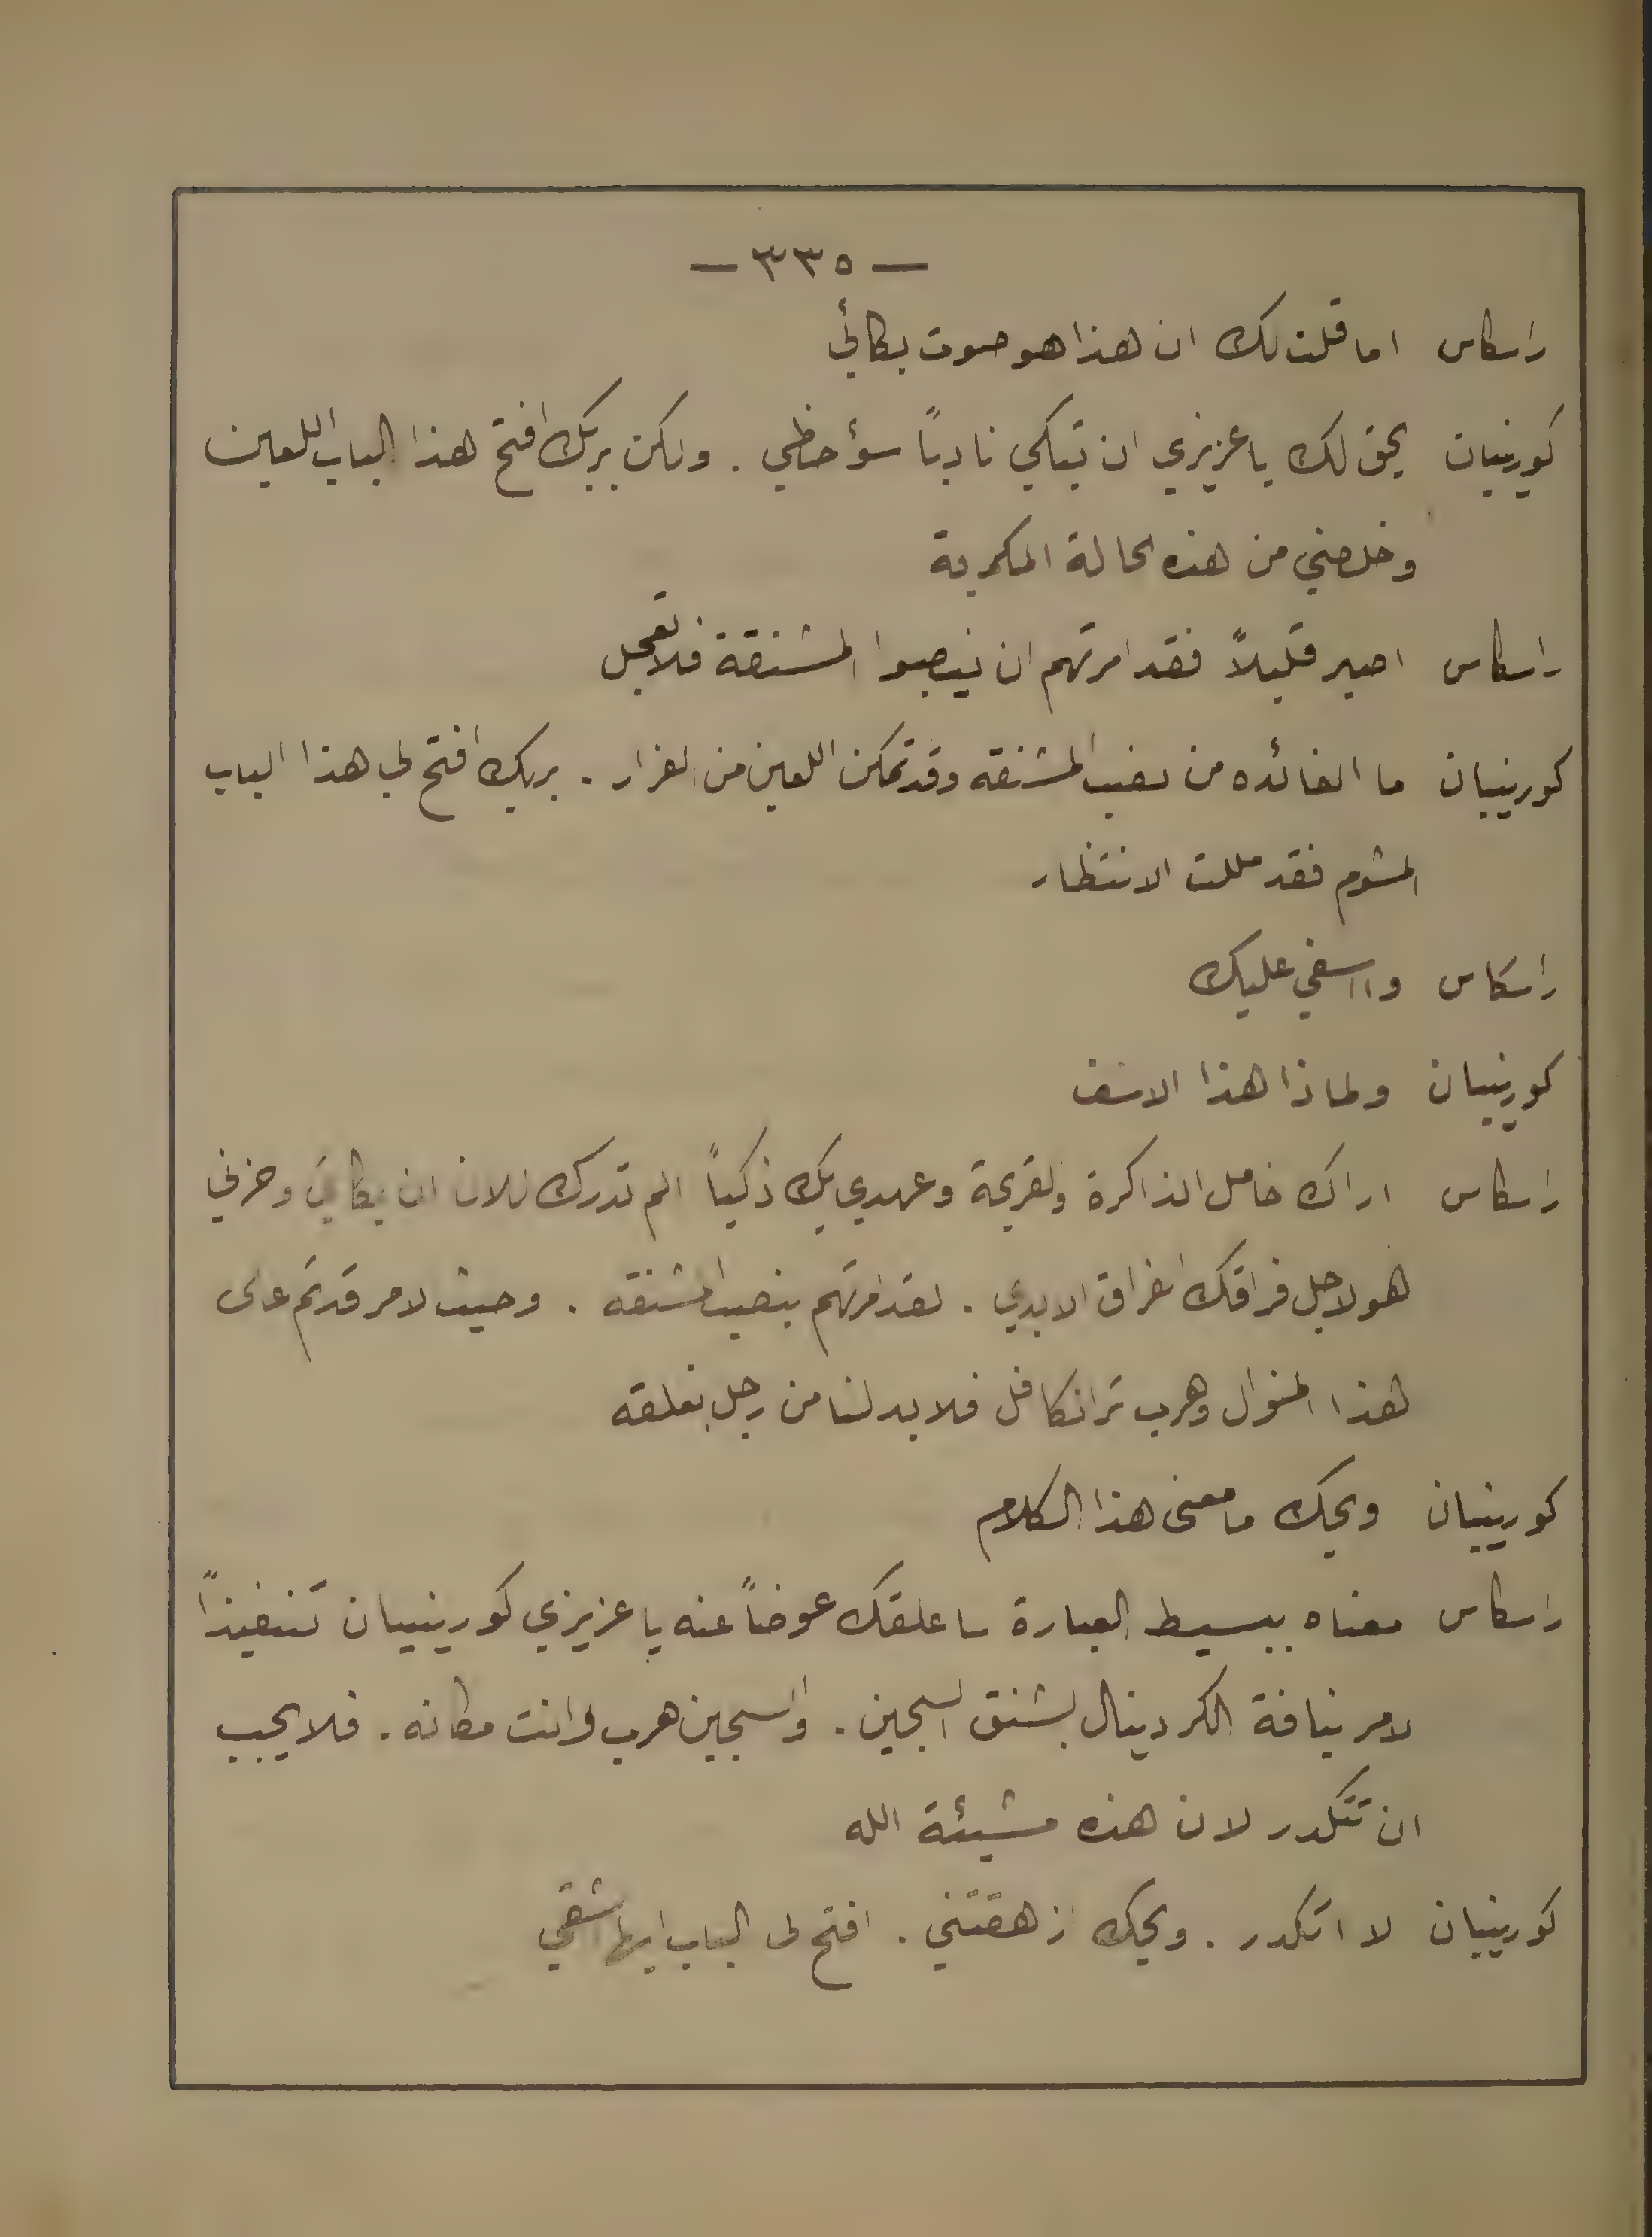 — ٣٣٥ —
راسكاس اما قلت لك ان هذا هو صوت بكائي
كورينيان يحق لك يا عزيزي ان تبكي نادباً سؤ حظي . ولكن بربك افتح هذا الباب اللعين
وخلصني من هذه الحالة المكربة
راسكاس اصبر قليلاً فقد امرتهم ان ينصبوا المشنقة فلا تعجل
كورينيان ما الفائده من نصب المشنقه وقد تمكن اللعين من الفرار . بربك افتح لي هذا الباب
المشوم فقد مللت الانتظار
راسكاس وااسفي عليك
كورينيان ولماذا هذا الاسف
راسكاس اراك خامل الذاكرة والقريحة وعهدي بك ذكياً الم تدرك للان ان بكائي وحزني
هو لاجل فراقك الفراق الابدي . لقد امرتهم بنصب المشنقه . وحيث لامر قد تم على
هذا المنوال وهرب ترانكافل فلا بد لنا من رجل نعلقه
كورينيان ويحك ما معنى هذا الكلام
راسكاس معناه ببسيط العبارة ساعلقك عوضاً عنه يا عزيزي كورينيان تنفيذاً
لامر نيافة الكردينال بشنق السجين . والسجين هرب وانت مكانه . فلا يجب
ان تتكدر لان هذه مشيئة الله
كورينيان لا اتكدر . ويحك ازهقتني . افتح لى الباب ايها الشقي